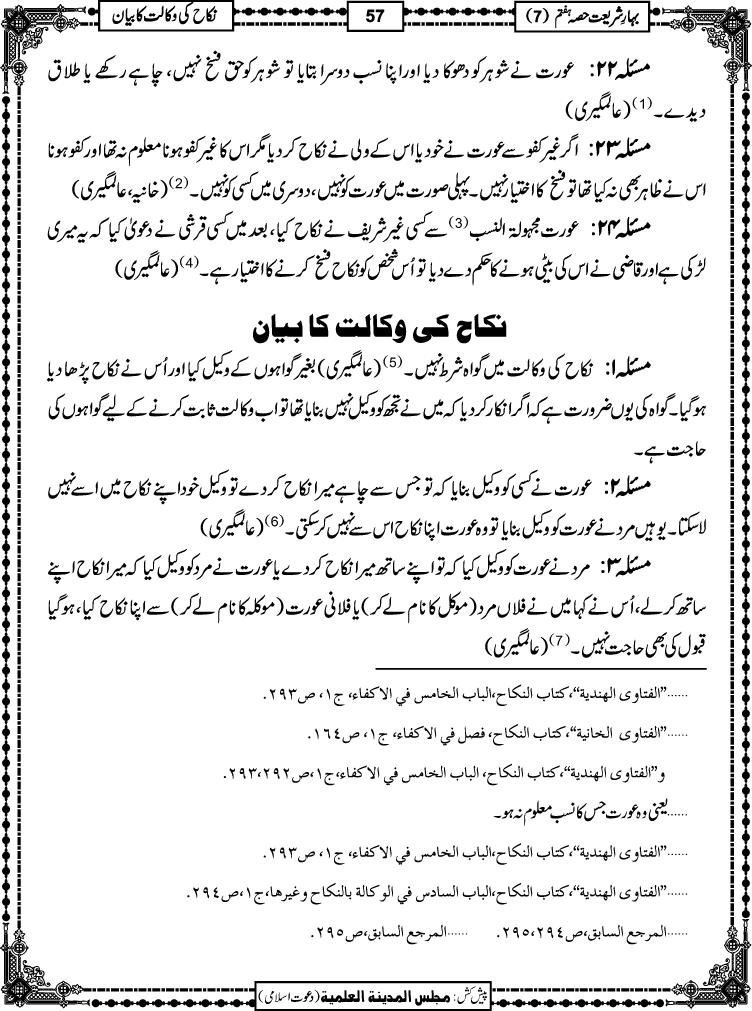 بہارِ شریعت حصہ ہفتم (7)
57
نکاح کی وکالت کا بیان
مسئلہ ۲۲: عورت نے شوہر کو دھوکا دیا اور اپنا نسب دوسرا بتایا تو شوہر کو حق فسخ نہیں، چاہے رکھے یا طلاق
دیدے۔(1) (عالمگیری)
مسئلہ ۲۳: اگر غیر کفو سے عورت نے خود یا اس کے ولی نے نکاح کر دیا مگر اس کا غیر کفو ہونا معلوم نہ تھا اور کفو ہونا
اس نے ظاہر بھی نہ کیا تھا تو فسخ کا اختیار نہیں۔ پہلی صورت میں عورت کو نہیں، دوسری میں کسی کو نہیں۔(2) (خانیہ، عالمگیری)
مسئلہ ۲۴: عورت مجہولۃ النسب(3) سے کسی غیر شریف نے نکاح کیا، بعد میں کسی قرشی نے دعویٰ کیا کہ یہ میری
لڑکی ہے اور قاضی نے اس کی بیٹی ہونے کا حکم دے دیا تو اُس شخص کو نکاح فسخ کرنے کا اختیار ہے۔(4) (عالمگیری)
نکاح کی وکالت کا بیان
مسئلہ ۱: نکاح کی وکالت میں گواہ شرط نہیں۔(5) (عالمگیری) بغیر گواہوں کے وکیل کیا اور اُس نے نکاح پڑھا دیا
ہوگیا۔ گواہ کی یوں ضرورت ہے کہ اگر انکار کر دیا کہ میں نے تجھ کو وکیل نہیں بنایا تھا تو اب وکالت ثابت کرنے کے لیے گواہوں کی
حاجت ہے۔
مسئلہ ۲: عورت نے کسی کو وکیل بنایا کہ تو جس سے چاہے میرا نکاح کر دے تو وکیل خود اپنے نکاح میں اسے نہیں
لاسکتا۔ یوہیں مرد نے عورت کو وکیل بنایا تو وہ عورت اپنا نکاح اس سے نہیں کرسکتی۔(6) (عالمگیری)
مسئلہ ۳: مرد نے عورت کو وکیل کیا کہ تو اپنے ساتھ میرا نکاح کر دے یا عورت نے مرد کو وکیل کیا کہ میرا نکاح اپنے
ساتھ کرلے، اُس نے کہا میں نے فلاں مرد (موکل کا نام لے کر) یا فلانی عورت (موکلہ کا نام لے کر) سے اپنا نکاح کیا، ہوگیا
قبول کی بھی حاجت نہیں۔(7) (عالمگیری)
......"الفتاوى الهندية"،كتاب النكاح،الباب الخامس في الاكفاء، ج١، ص٢٩٣.
......"الفتاوى الخانية"،كتاب النكاح، فصل في الاكفاء، ج١، ص١٦٤.
و"الفتاوى الهندية"،كتاب النكاح، الباب الخامس في الاكفاء،ج١،ص٢٩٢،٢٩٣.
......یعنی وہ عورت جس کا نسب معلوم نہ ہو۔
......"الفتاوى الهندية"،كتاب النكاح،الباب الخامس في الاكفاء، ج١، ص٢٩٣.
......"الفتاوى الهندية"،كتاب النكاح،الباب السادس في الوكالة بالنكاح وغيرها،ج١،ص٢٩٤.
......المرجع السابق،ص٢٩٤،٢٩٥. ......المرجع السابق،ص٢٩٥.
پیش کش: مجلس المدينة العلمية (دعوت اسلامی)